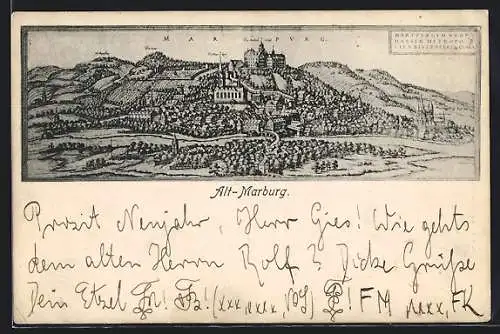 MARPVRG.
Alt-Marburg.
Prosit Neujahr, Herr Gies! Wie gehts
dem alten Herrn Rolf? Dicke Grüße
Dein Etzel (xxx, xxxx, ) FM xxxx, FK